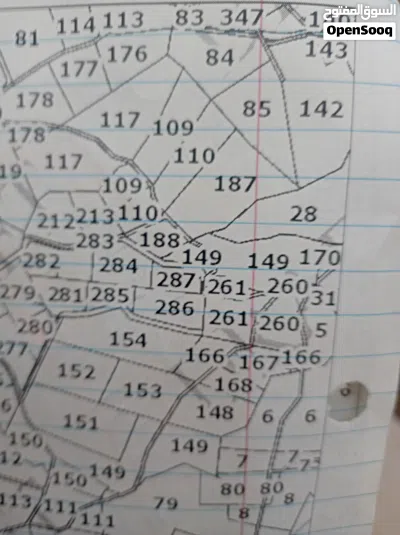 السوق المفتوح
OpenSooq
81 114 113 83 347
143
176 84
177
178
117 109 85 142
178
117 110
109 187
212 213 110 28
283 188
282 284 149 149 170
287 261 260
279 281 285 31
286 261 260 5
280
154
277 166 167 166
152 153 168
151 148 6 6
150 149
12 7 7 7
150 149
113 111 79 80 80 8
111 8